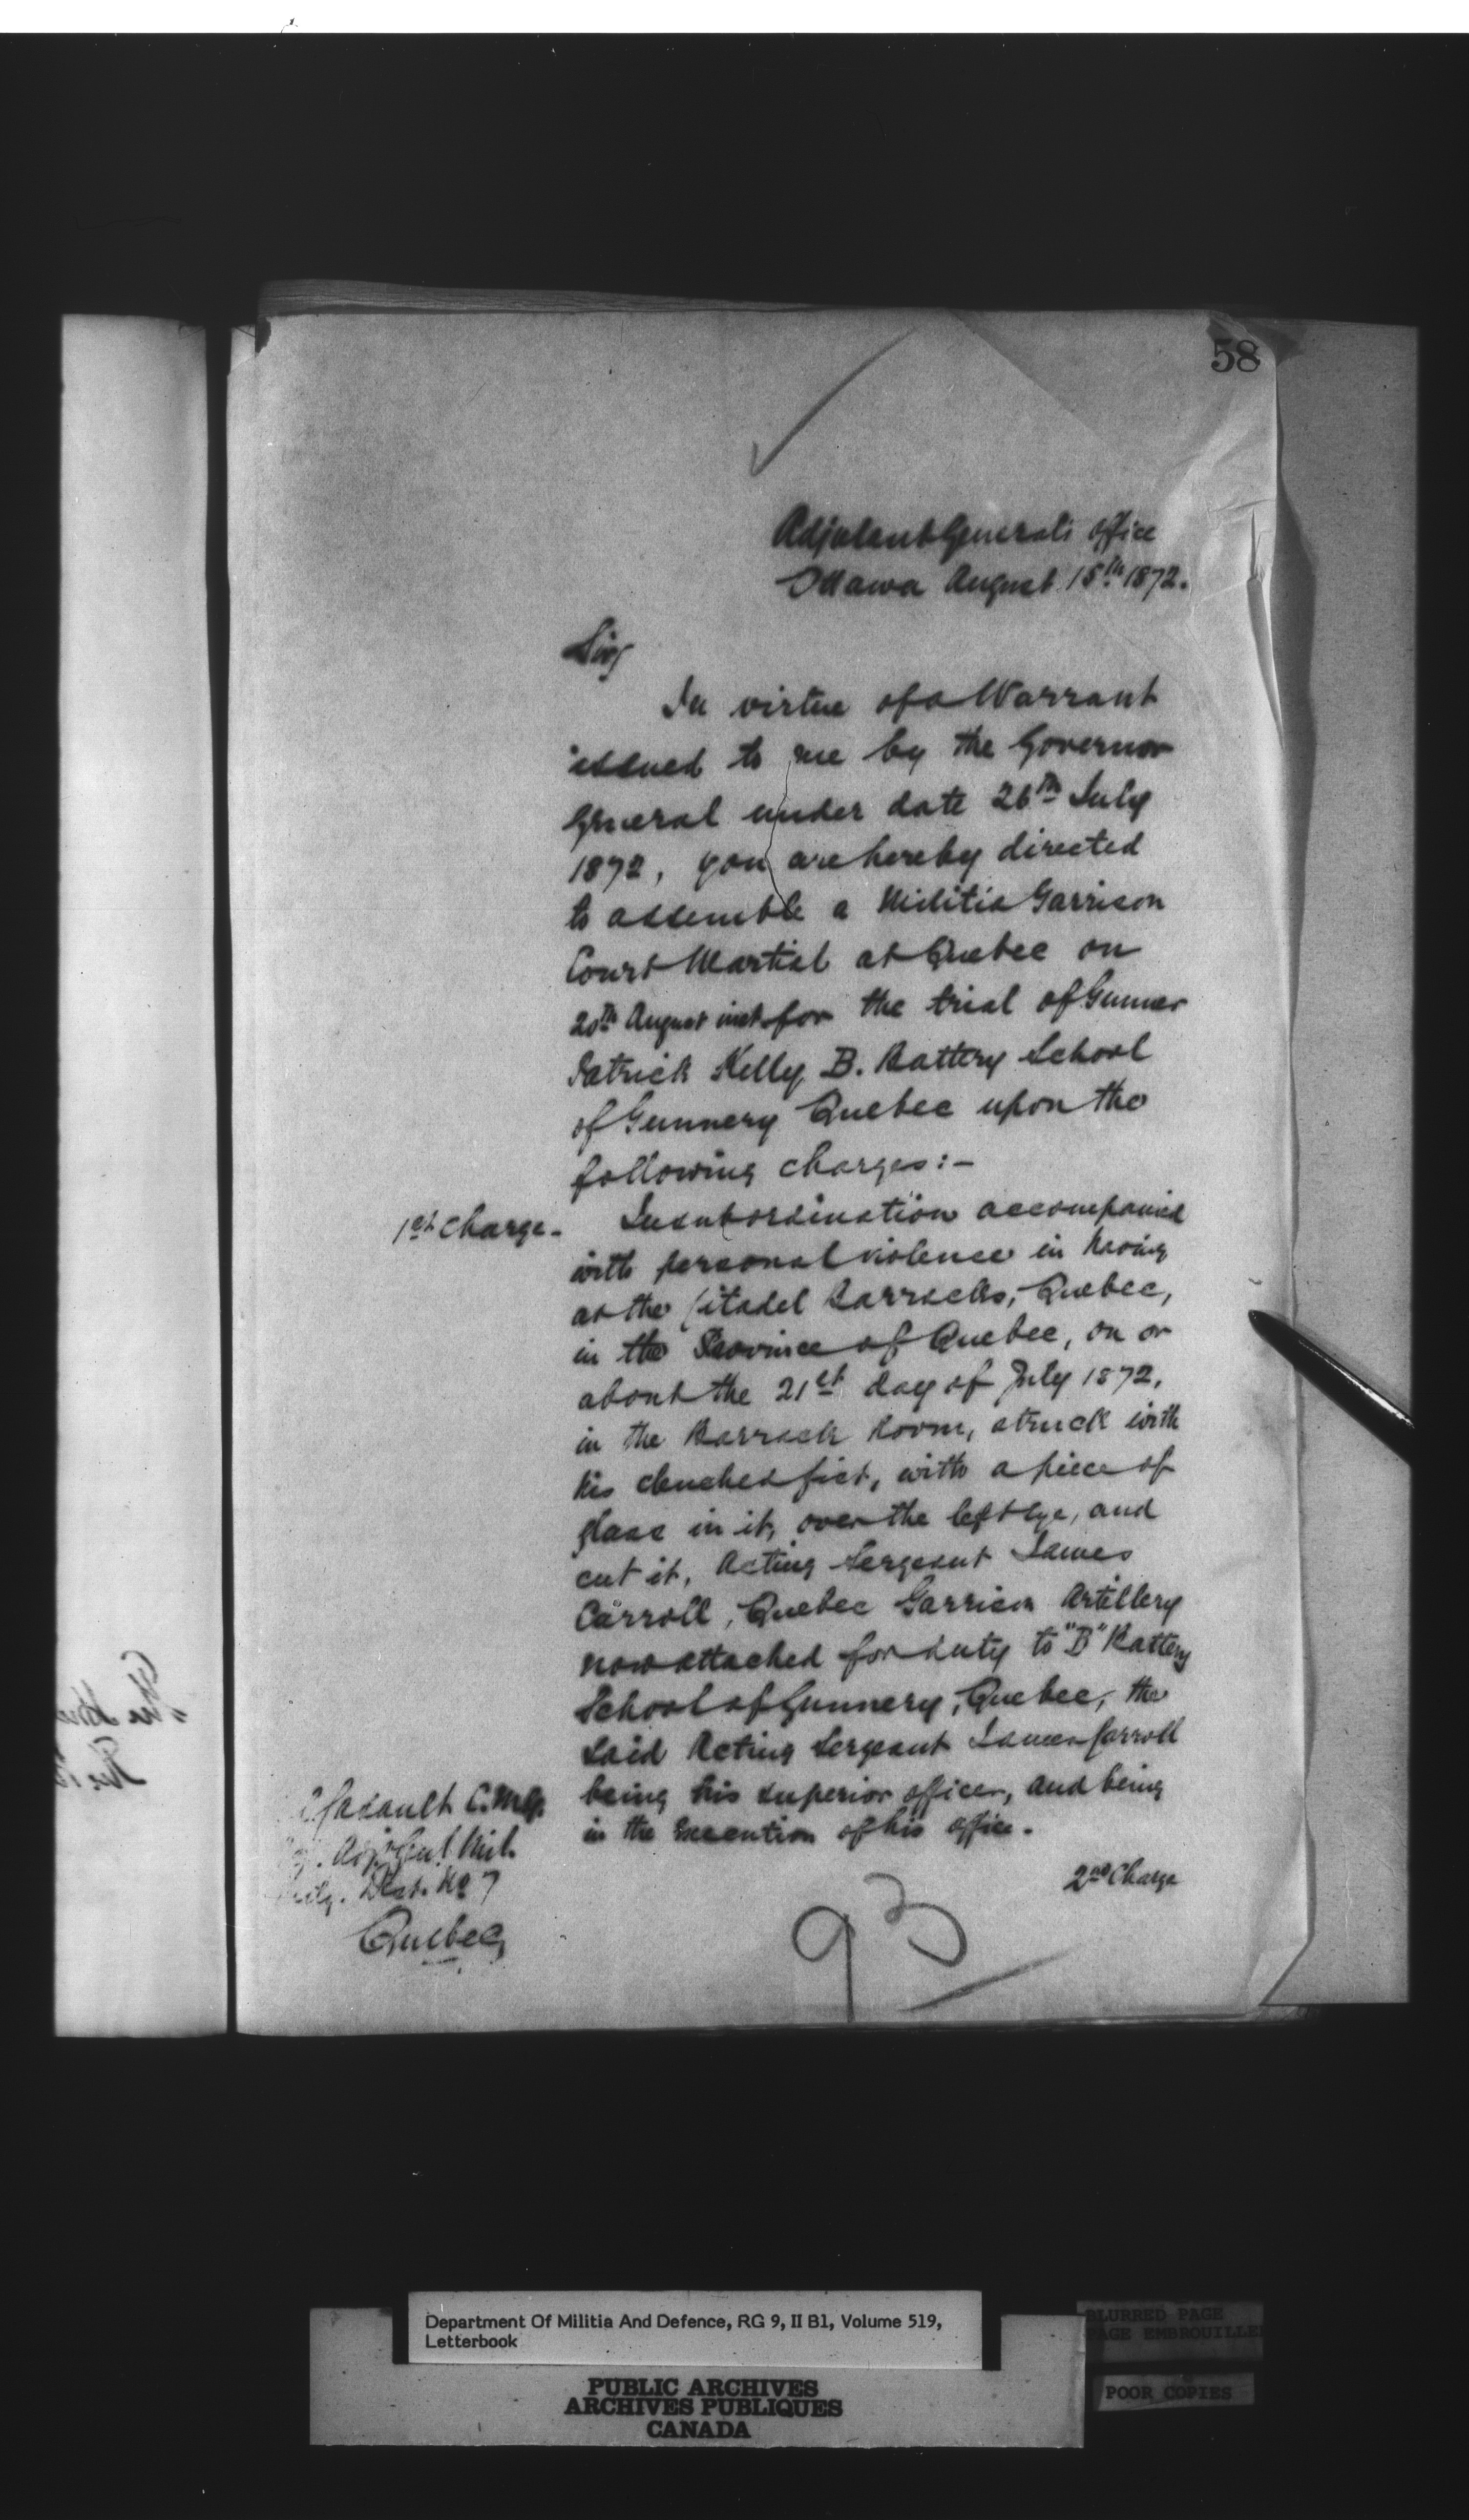 58
Adjutant General's Office
Ottawa August 15th 1872.
Sir,
In virtue of a Warrant
issued to me by the Governor
General under date 26th July
1872, you are hereby directed
to assemble a Militia Garrison
Court Martial at Quebec on
20th August inst. for the trial of Gunner
Patrick Kelly B. Battery School
of Gunnery Quebec upon the
following charges:-
1st Charge- Insubordination accompanied
with personal violence in having
at the Citadel Barracks, Quebec,
in the Province of Quebec, on or
about the 21st day of July 1872,
in the Barrack Room, struck with
his clenched fist, with a piece of
glass in it, over the left eye, and
cut it, Acting Sergeant James
Carroll, Quebec Garrison Artillery
now attached for duty to "B" Battery
School of Gunnery, Quebec, the
said Acting Sergeant James Carroll
being his superior officer, and being
in the execution of his office.
2nd Charge
Casault C.M.G.
Adjt Genl Mil.
Dist. No 7
Quebec,
93
Department Of Militia And Defence, RG 9, II B1, Volume 519,
Letterbook
PUBLIC ARCHIVES
ARCHIVES PUBLIQUES
CANADA
BLURRED PAGE
PAGE EMBROUILLE
POOR COPIES